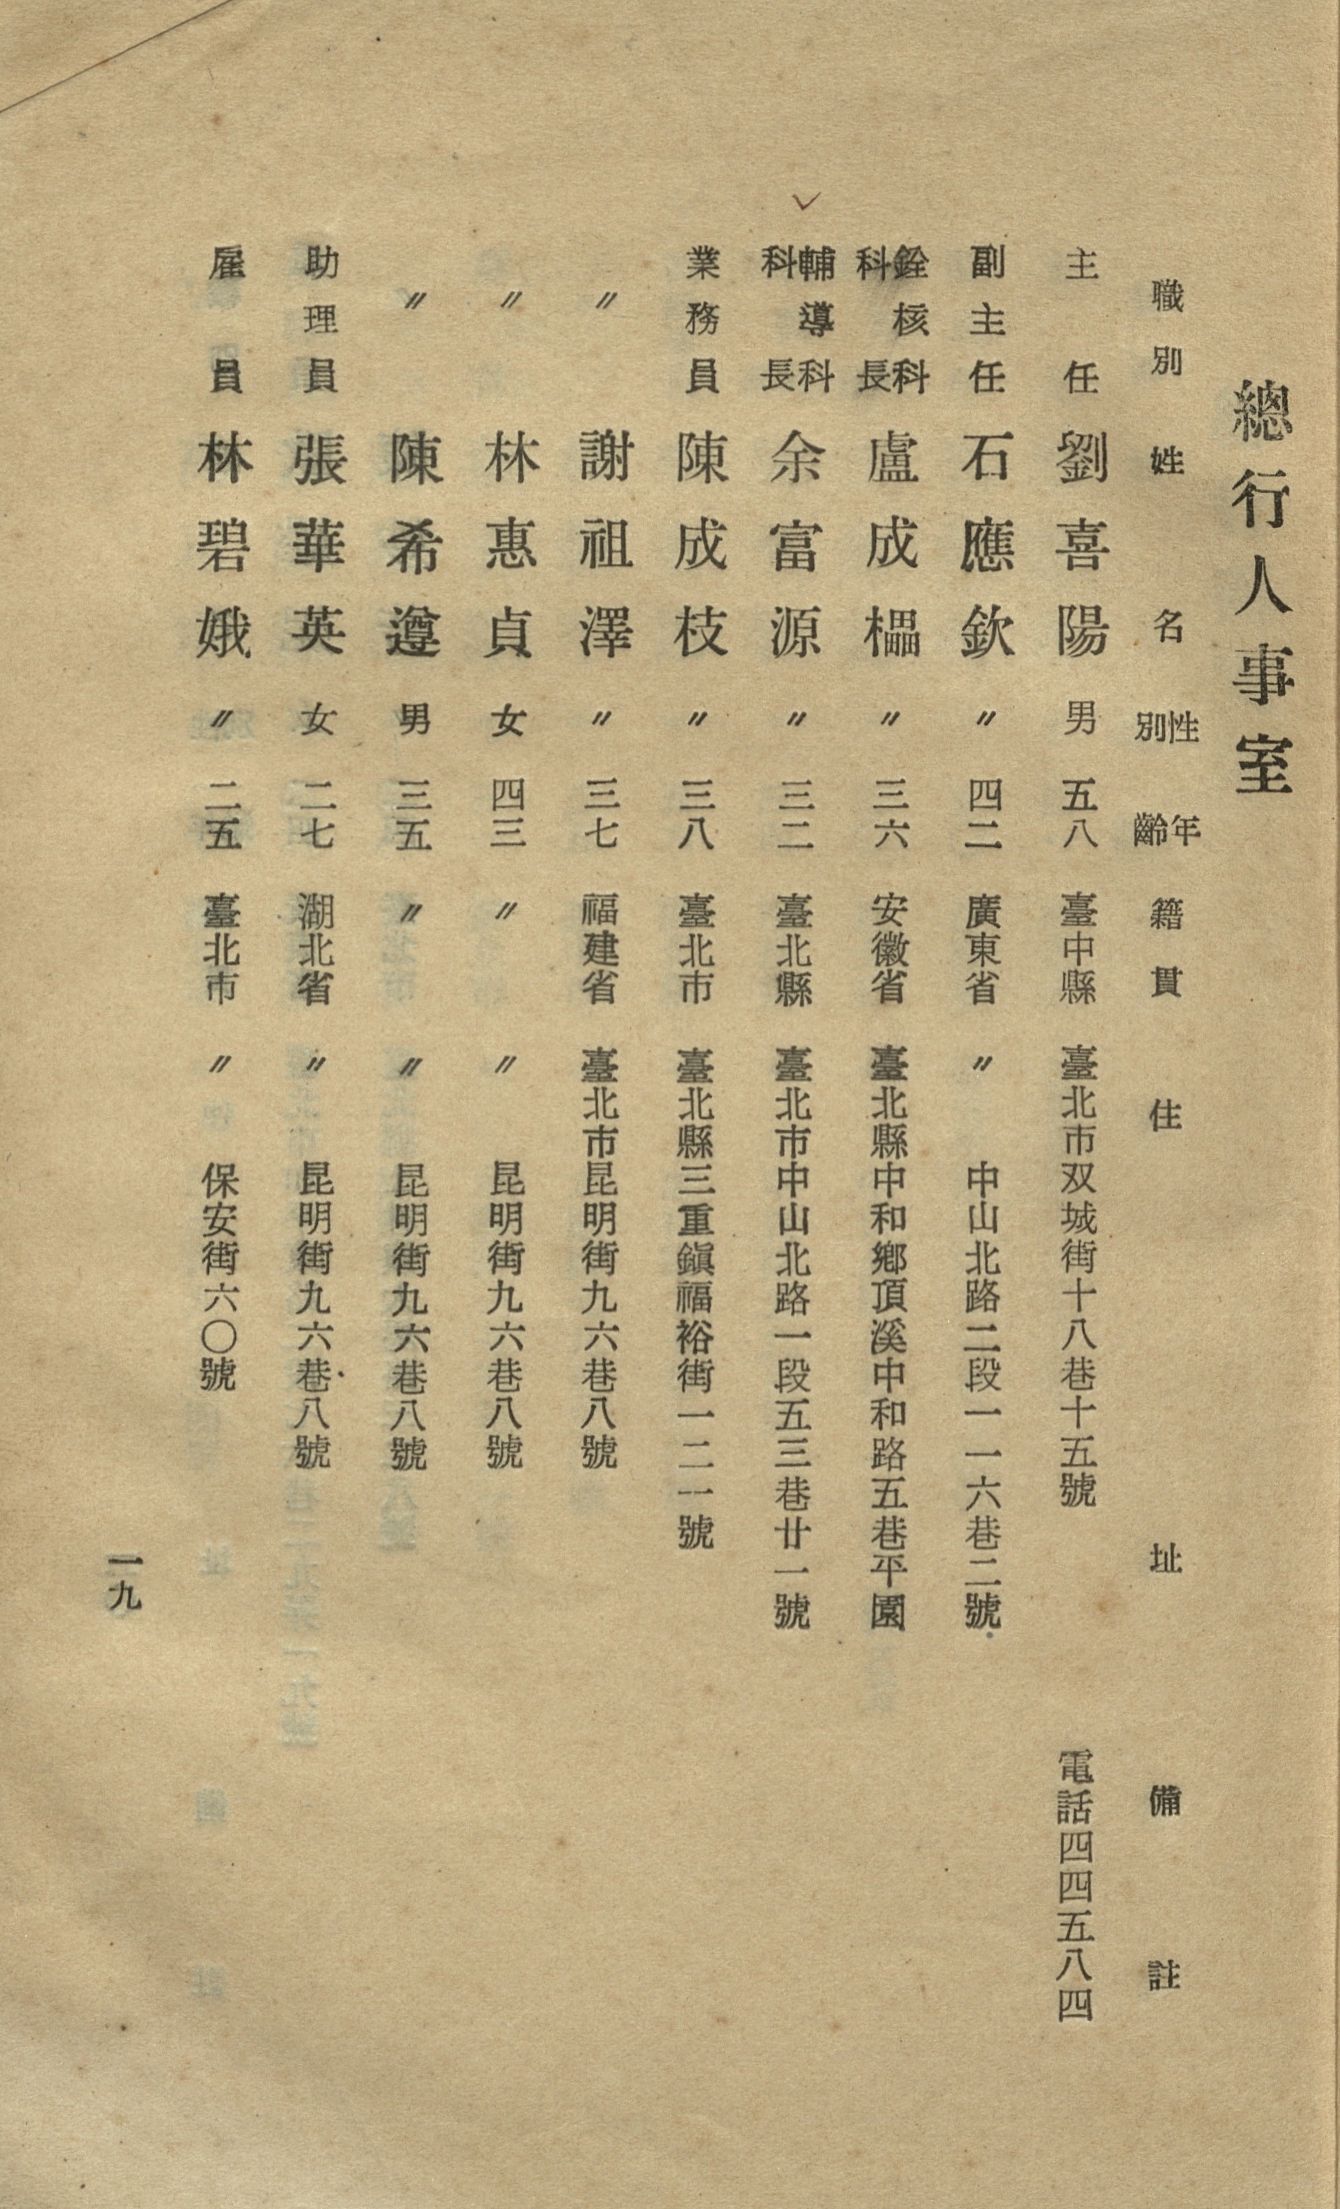 總行人事室
職別 姓名 性別 年齡 籍貫 住址 備註
主任 劉喜陽 男 五八 臺中縣 臺北市双城街十八巷十五號 電話四四五八四
副主任 石應欽 〃 四二 廣東省 〃 中山北路二段一一六巷二號
銓核科科長 盧成櫑 〃 三六 安徽省 臺北縣中和鄉頂溪中和路五巷平園
輔導科科長 余富源 〃 三二 臺北縣 臺北市中山北路一段五三巷廿一號
業務員 陳成枝 〃 三八 臺北市 臺北縣三重鎭福裕街一二一號
〃 謝祖澤 〃 三七 福建省 臺北市昆明街九六巷八號
〃 林惠貞 女 四三 〃 〃 昆明街九六巷八號
〃 陳希遵 男 三五 〃 〃 昆明街九六巷八號
助理員 張華英 女 二七 湖北省 〃 昆明街九六巷八號
雇員 林碧娥 〃 二五 臺北市 〃 保安街六〇號
一九